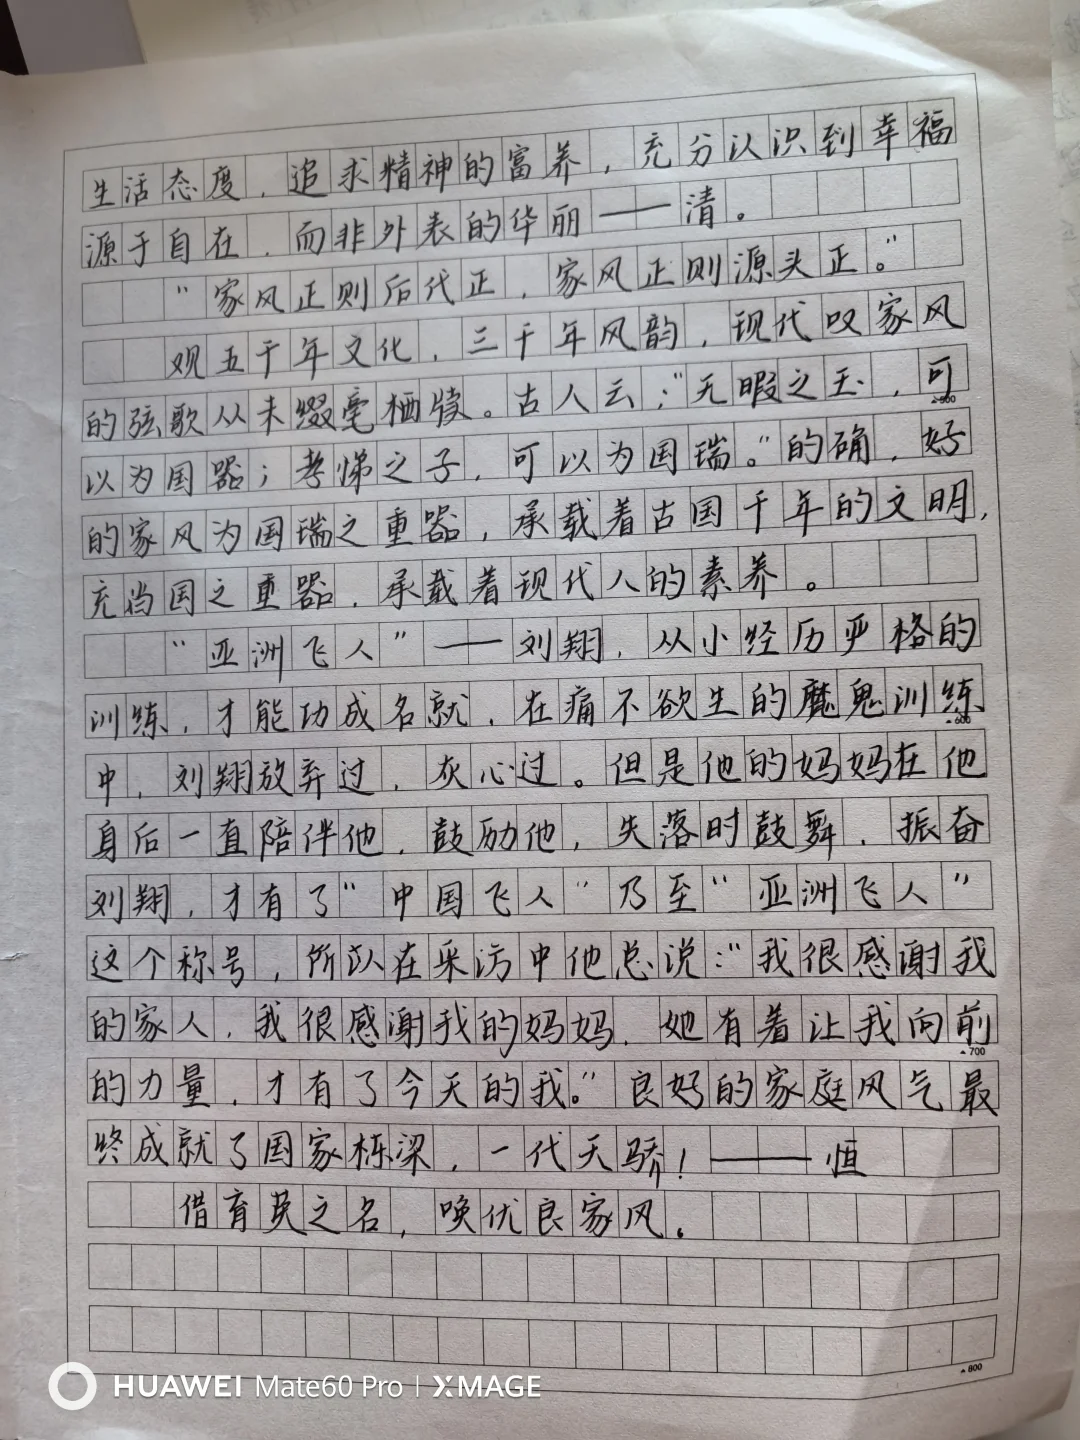 生活态度，追求精神的富养，充分认识到幸福
源于自在，而非外表的华丽——清。
"家风正则后代正，家风正则源头正。"
观五千年文化，三千年风韵，现代叹家风
的弦歌从未缀毫栖牍。古人云："无暇之玉，可
▲500
以为国器；孝悌之子，可以为国瑞。"的确，好
的家风为国瑞之重器，承载着古国千年的文明，
充当国之重器，承载着现代人的素养。
"亚洲飞人"——刘翔，从小经历严格的
训练，才能功成名就，在痛不欲生的魔鬼训练
▲600
中，刘翔放弃过，灰心过。但是他的妈妈在他
身后一直陪伴他，鼓励他，失落时鼓舞，振奋
刘翔，才有了"中国飞人"乃至"亚洲飞人"
这个称号，所以在采访中他总说："我很感谢我
的家人，我很感谢我的妈妈，她有着让我向前
▲700
的力量，才有了今天的我。"良好的家庭风气最
终成就了国家栋梁，一代天骄！——恒
借育英之名，唤优良家风。
▲800
HUAWEI Mate60 Pro | XMAGE